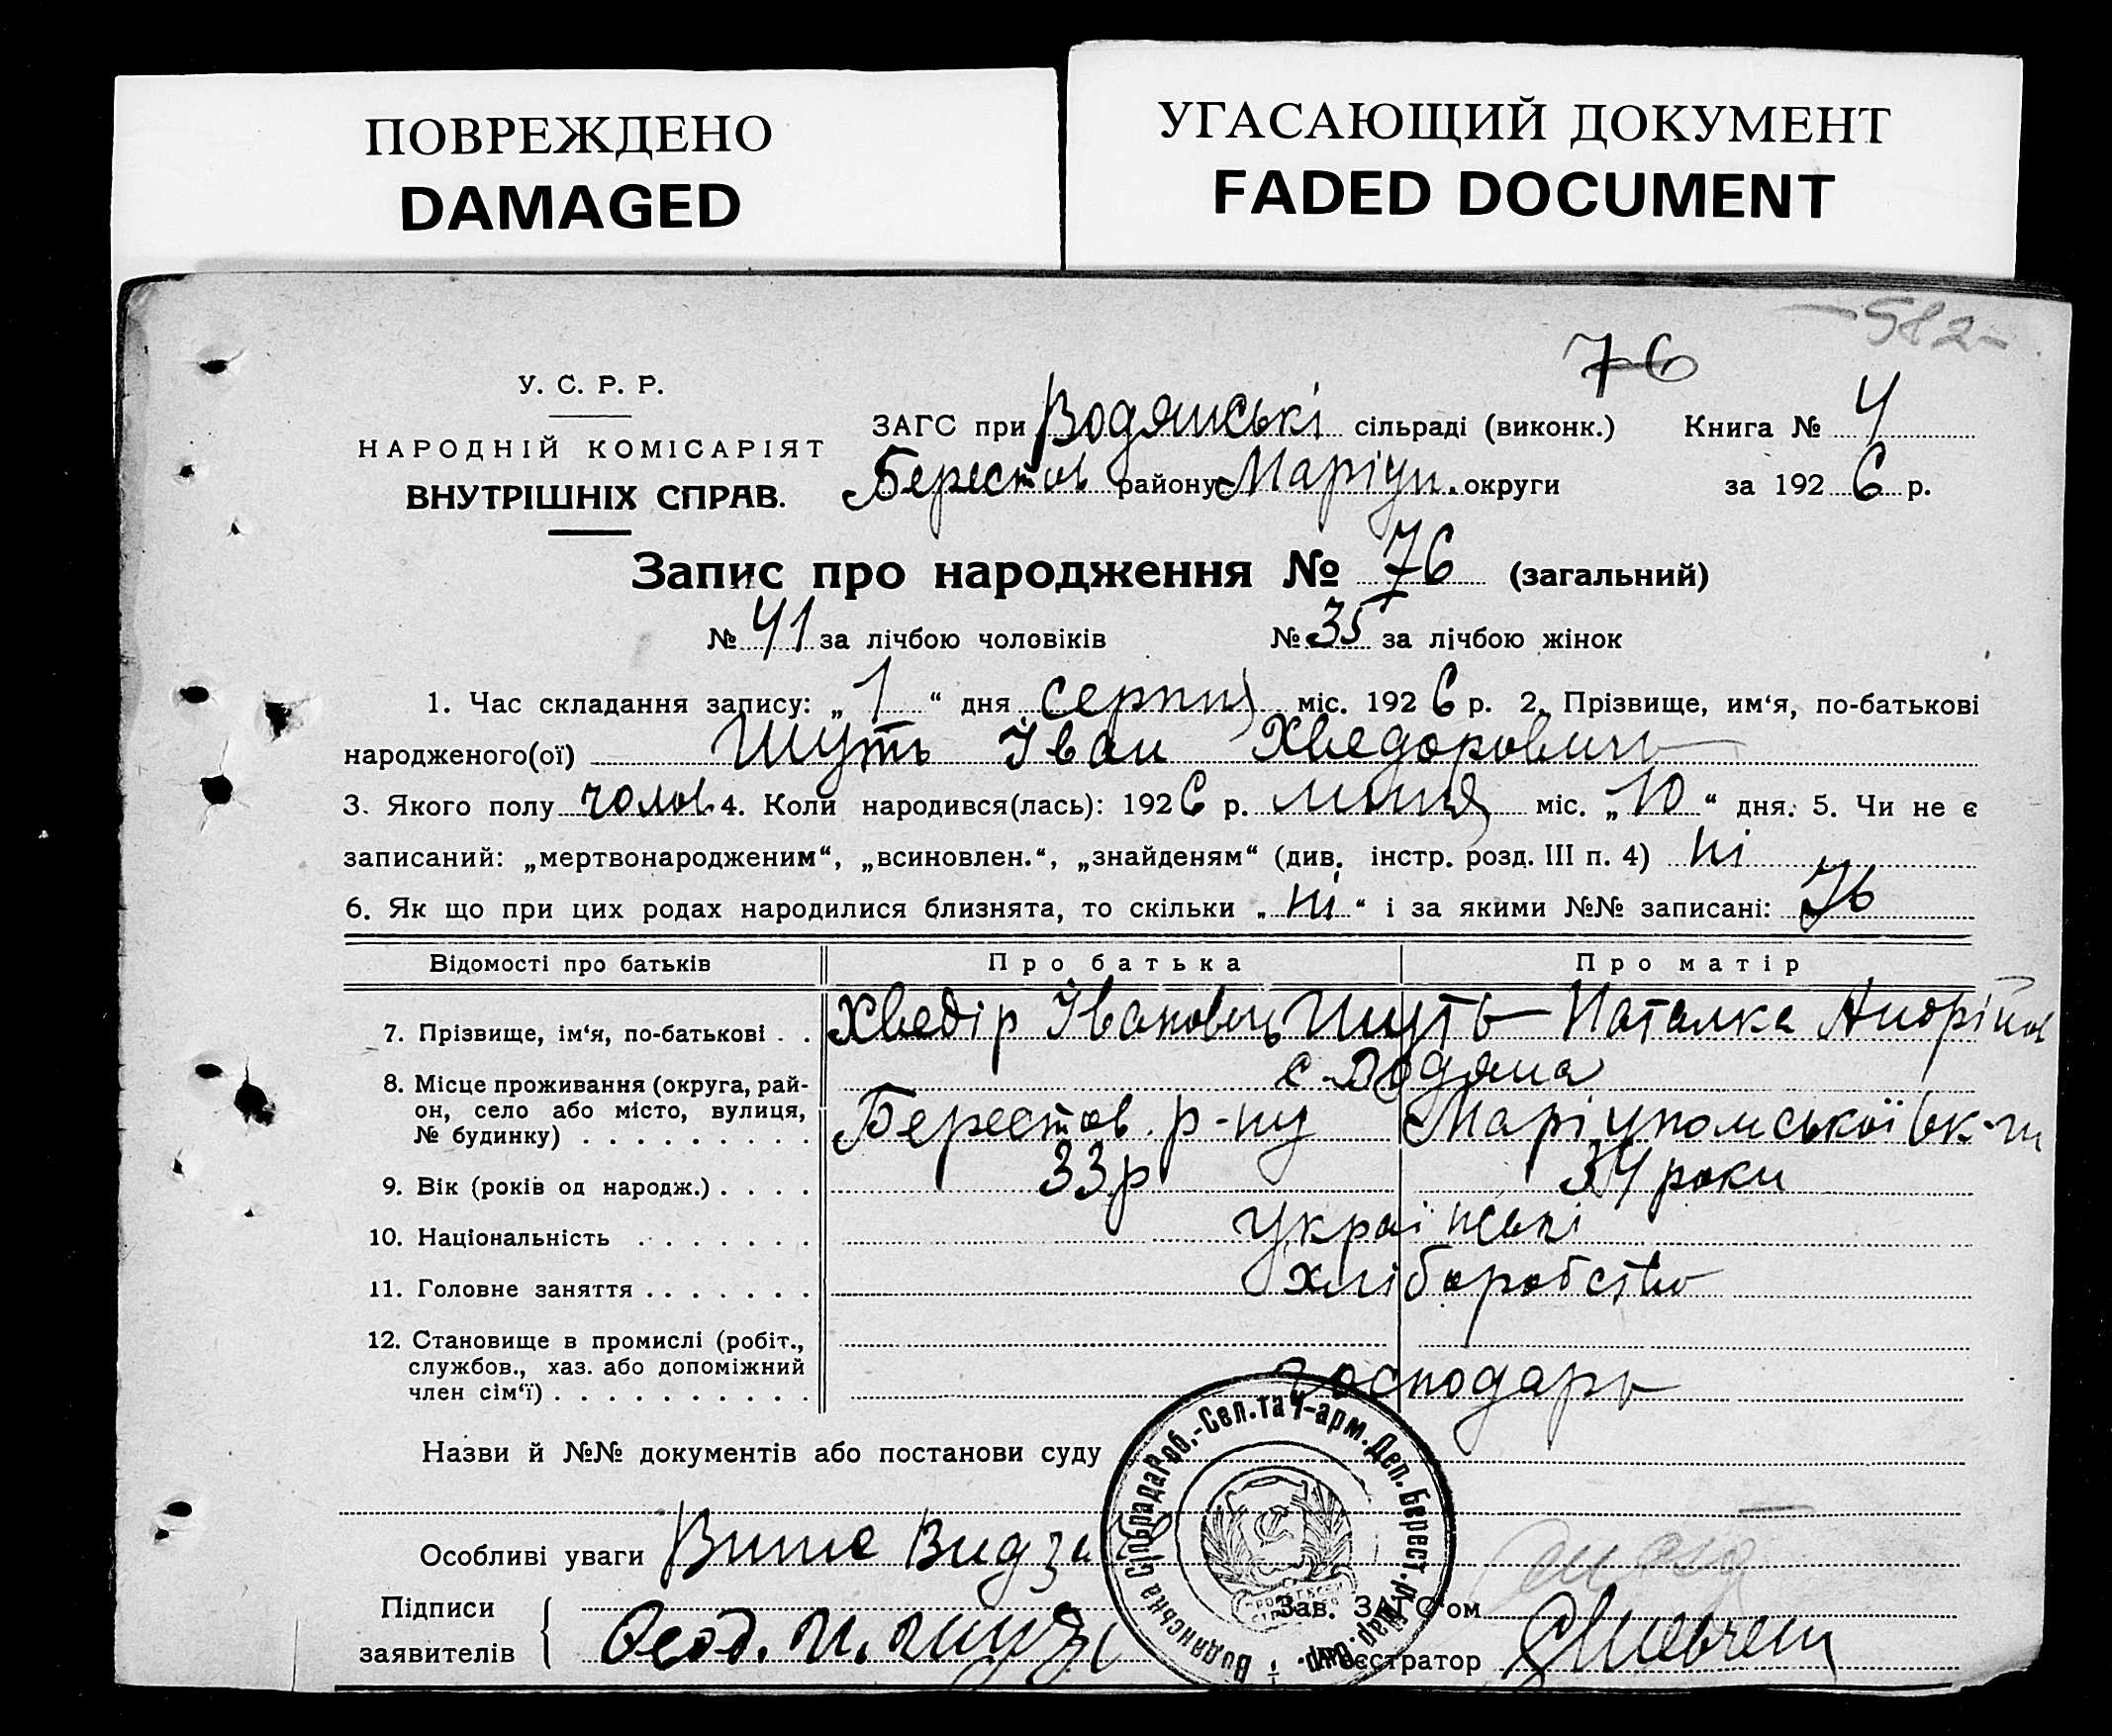 ПОВРЕЖДЕНО
DAMAGED
УГАСАЮЩИЙ ДОКУМЕНТ
FADED DOCUMENT
582
76
У. С. Р. Р.
НАРОДНІЙ КОМІСАРІЯТ
ВНУТРІШНІХ СПРАВ.
ЗАГС при Водянські сільраді (виконк.) Книга № 4
Берестов району Маріуп. округи за 1926 р.
Запис про народження № 76 (загальний)
№ 41 за лічбою чоловіків № 35 за лічбою жінок
1. Час складання запису: „ 1 “ дня серпня міс. 1926 р. 2. Прізвище, им‘я, по-батькові
народженого(ої) Шуть Іван Хведорович
3. Якого полу чолов 4. Коли народився(лась): 1926 р. липня міс. „ 10 “ дня. 5. Чи не є
записаний: „мертвонародженим“, „всиновлен.“, „знайденям“ (див. інстр. розд. III п. 4) ні
6. Як що при цих родах народилися близнята, то скільки „ ні “ і за якими №№ записані: 76
Відомості про батьків Про батька Про матір
7. Прізвище, ім‘я, по-батькові . . Хведір Іванович Шуть Наталка Андріївн
8. Місце проживання (округа, рай-
он, село або місто, вулиця,
№ будинку) . . . . . . . . .
с. Водяна
Берестов. р-ну Маріупольської ок-ги
9. Вік (років од народж.) . . . . 33 р 34 роки
10. Національність . . . . . . . Українські
11. Головне заняття . . . . . . . хліборобство
12. Становище в промислі (робіт.,
службов., хаз. або допоміжний
член сім‘ї) . . . . . . . . . . господарь
Назви й №№ документів або постанови суду
Особливі уваги
Підписи
заявителів
Зав. ЗАГС‘ом
Реєстратор
Водянська Сільрада Роб.-Сел. та Ч-арм. Деп. Берест. р. Мар. окр.